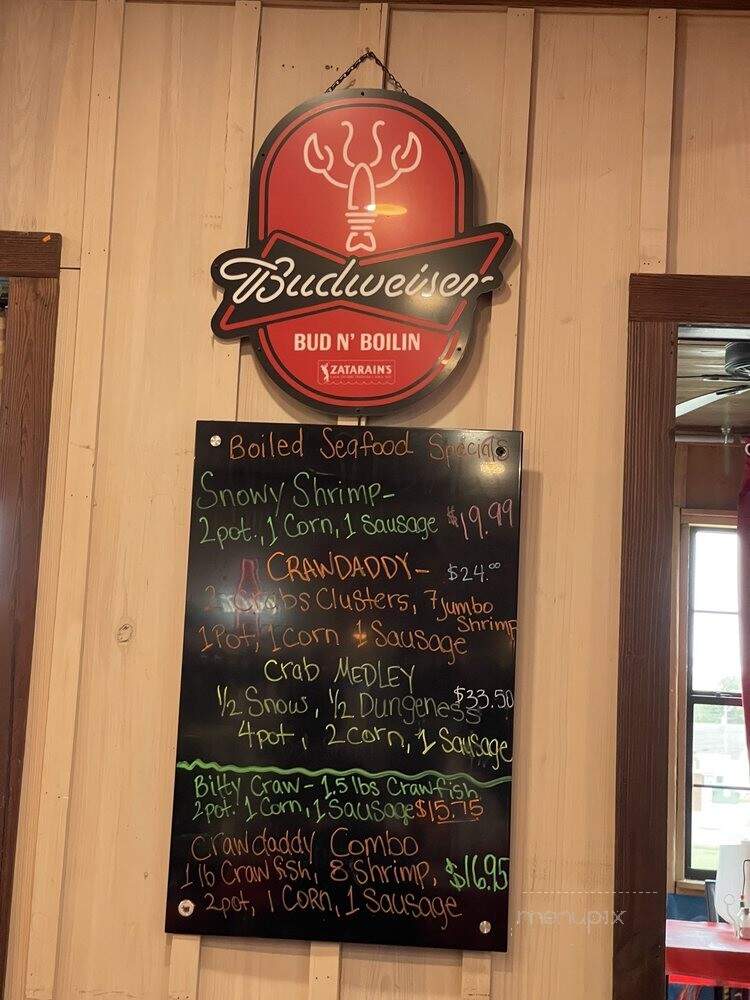 Budweiser
BUD N' BOILIN
ZATARAIN'S
Boiled Seafood Specials
Snowy Shrimp-
2pot., 1 Corn, 1 Sausage $19.99
CRAWDADDY- $24.00
2 Crabs Clusters, 7 jumbo
Shrimp
1 Pot, 1 Corn 1 Sausage
Crab MEDLEY
1/2 Snow, 1/2 Dungeness $33.50
4pot, 2 corn, 1 Sausage
Bitty Craw- 1.5 lbs Crawfish
2pot. 1 Corn, 1 Sausage $15.75
Crawdaddy Combo
1 lb Crawfish, 8 Shrimp, $16.95
2pot, 1 Corn, 1 Sausage
menupix